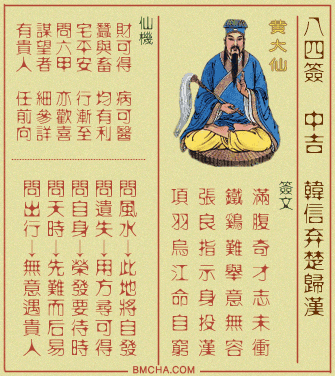 八四簽 中吉 韓信弃楚歸漢
黄大仙
簽文
滿腹奇才志未衝
鐵鷄難舉意無容
張良指示身投漢
項羽烏江命自窮
仙機
財可得 病可醫
蠶與畜 均有利
宅平安 行漸至
問六甲 亦歡喜
謀望者 細參詳
有貴人 任前向
問風水→此地將自發
問遺失→用方尋可得
問自身→榮發要待時
問天時→先難而后易
問出行→無意遇貴人
BMCHA.COM